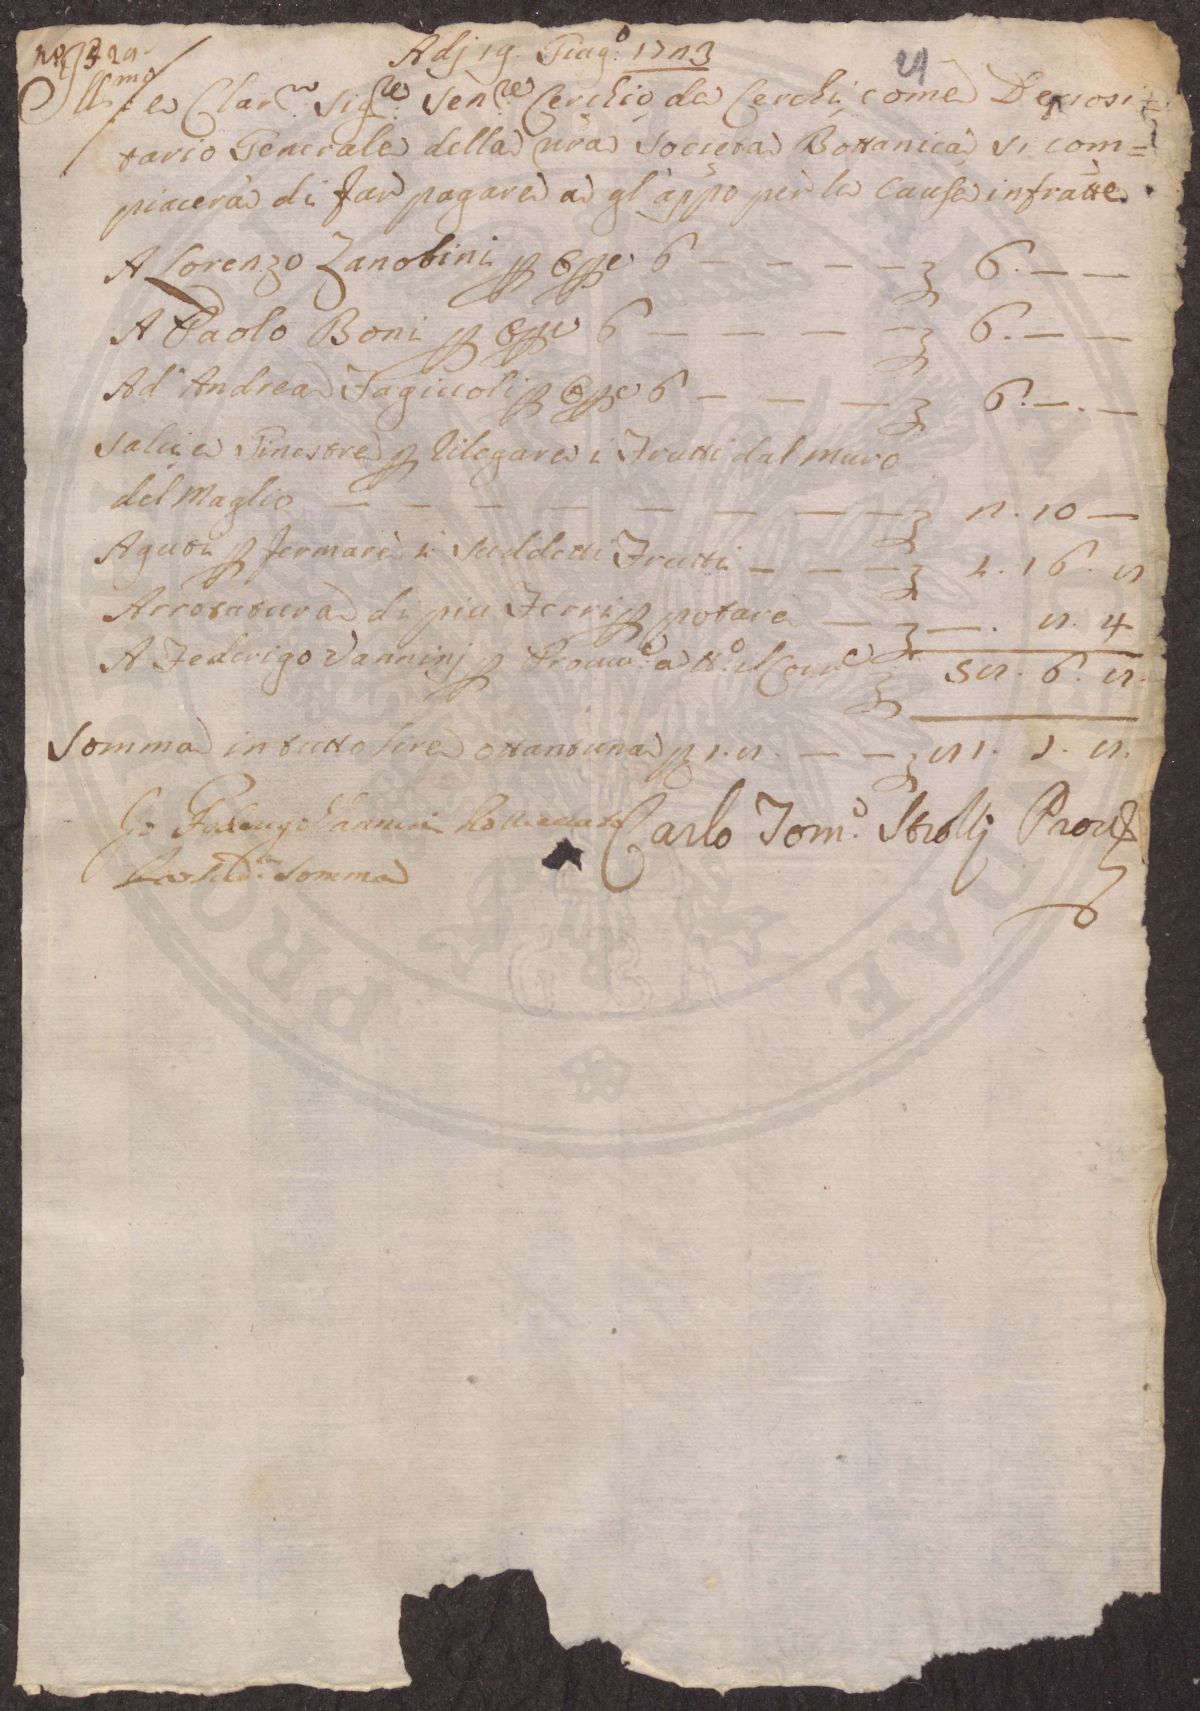 Adj 19. Giug.o 1743
Ill.mo e Clar.mo Sig.re Sen.re Cerchio de Cerchi come Deposi=
tario Generale della nra Società Bottanica si com=
piacerà di far pagare a gl'appo per le cause infratte
A Lorenzo Zanobini p Opre 6 — — — — 6. — —
A Paolo Boni p Opre 6 — — — — 6. — —
Ad Andrea Fagiuoli p Opre 6 — — — 6. — —
Salci e Ginestre p rilegare i Frutti dal muro
del Maglio — — — — — — — — 4. 10 —
Aguti p fermare i suddetti Frutti — — — 4. 16. 8
Arrotatura di più Ferri p potare — —. 8. 4
A Federigo Vannini p Provv.o a tt.o il Corr.e 54. 6. 8.
Somma in tutto Lire ottantuna p 1. 8. — — 81. 1. 8.
Io Federigo Vannini
somma
Carlo Tom.o Strozzj Prov.e
PRO
CAE